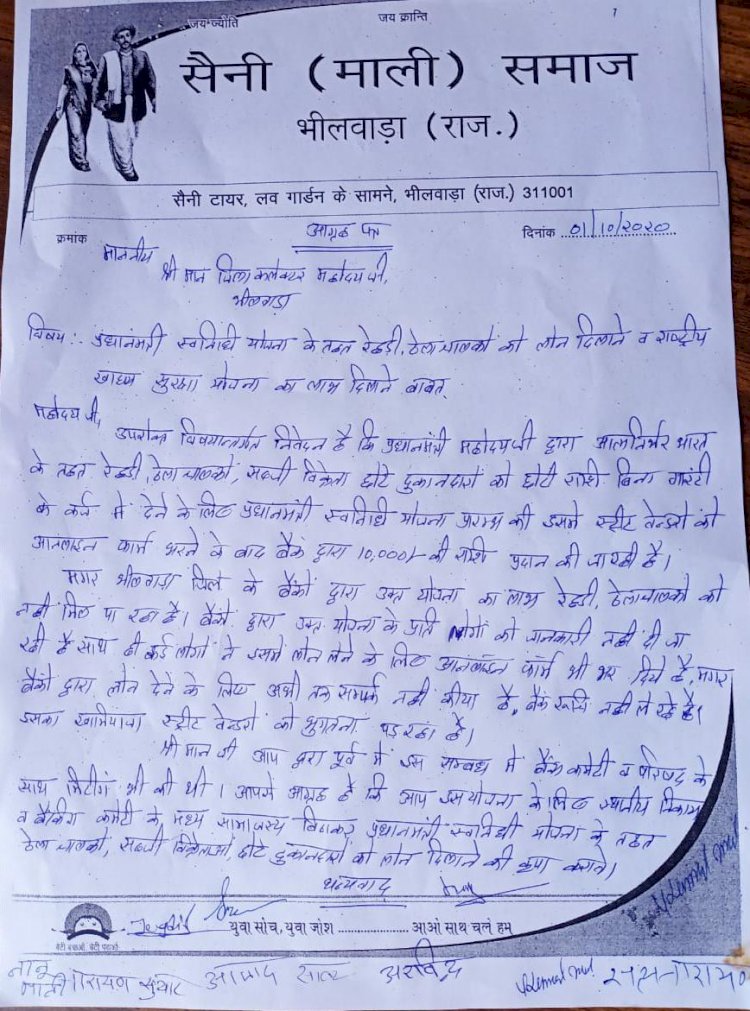 जय ज्योति
जय क्रान्ति
सैनी (माली) समाज
भीलवाड़ा (राज.)
सैनी टायर, लव गार्डन के सामने, भीलवाड़ा (राज.) 311001
क्रमांक
आग्रह पत्र
दिनांक 01/10/2020
माननीय
श्री मान जिला कलेक्टर महोदय जी,
भीलवाड़ा
विषय:- प्रधानमंत्री स्वनिधी योजना के तहत रेहडी, ठेला चालकों को लोन दिलाने व राष्ट्रीय
खाध्य सुरक्षा योजना का लाभ दिलाने बाबत्
महोदय जी,
उपरोक्त विषयान्तर्गत निवेदन है कि प्रधानमंत्री महोदय जी द्वारा आत्मनिर्भर भारत
के तहत रेहडी, ठेला चालकों, सब्जी विक्रेता छोटे दुकानदारों को छोटी राशी बिना गारंटी
के कर्ज में देने के लिए प्रधानमंत्री स्वनिधी योजना प्रारम्भ की इसमे स्ट्रीट वेन्डरों को
आनलाइन फार्म भरने के बाद बैंक द्वारा 10,000/- की राशि प्रदान की जा रही है।
मगर भीलवाड़ा जिले के बैंकों द्वारा उक्त योजना का लाभ रेहडी, ठेला चालकों को
नही मिल पा रहा है। बैंकों द्वारा उक्त योजना के प्रति लोगों को जानकारी नही दी जा
रही है साथ ही कई लोगों ने इसमे लोन लेने के लिए आनलाईन फार्म भी भर दिये है, मगर
बैंकों द्वारा लोन देने के लिए अभी तक सम्पर्क नही कीया है, बैंक रूचि नही ले रहे है।
इसका खामियाजा स्ट्रीट वेन्डरों को भुगतना पड रहा है।
श्री मान जी आप द्वारा पूर्व में इस सम्बन्ध मे बैंक कमेटी व परिषद के
साथ मिटींग भी की थी। आपसे आग्रह है कि आप इस योजना के लिए स्थानीय निकाय
व बैंकिग कमेटी के मध्य सामाजस्य बिठाकर प्रधानमंत्री स्वनिधी योजना के तहत
ठेला चालकों, सब्जी विक्रेताओं, छोटे दुकानदारों को लोन दिलाने की कृपा करावे।
धन्यवाद
बेटी बचाओ, बेटी पढाओ
युवा सोच, युवा जोश .................... आओं साथ चलें हम
नारायण